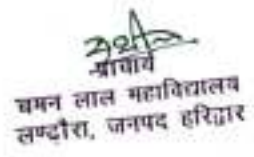 प्राचार्य
चमन लाल महाविद्यालय
लण्ढौरा, जनपद हरिद्वार